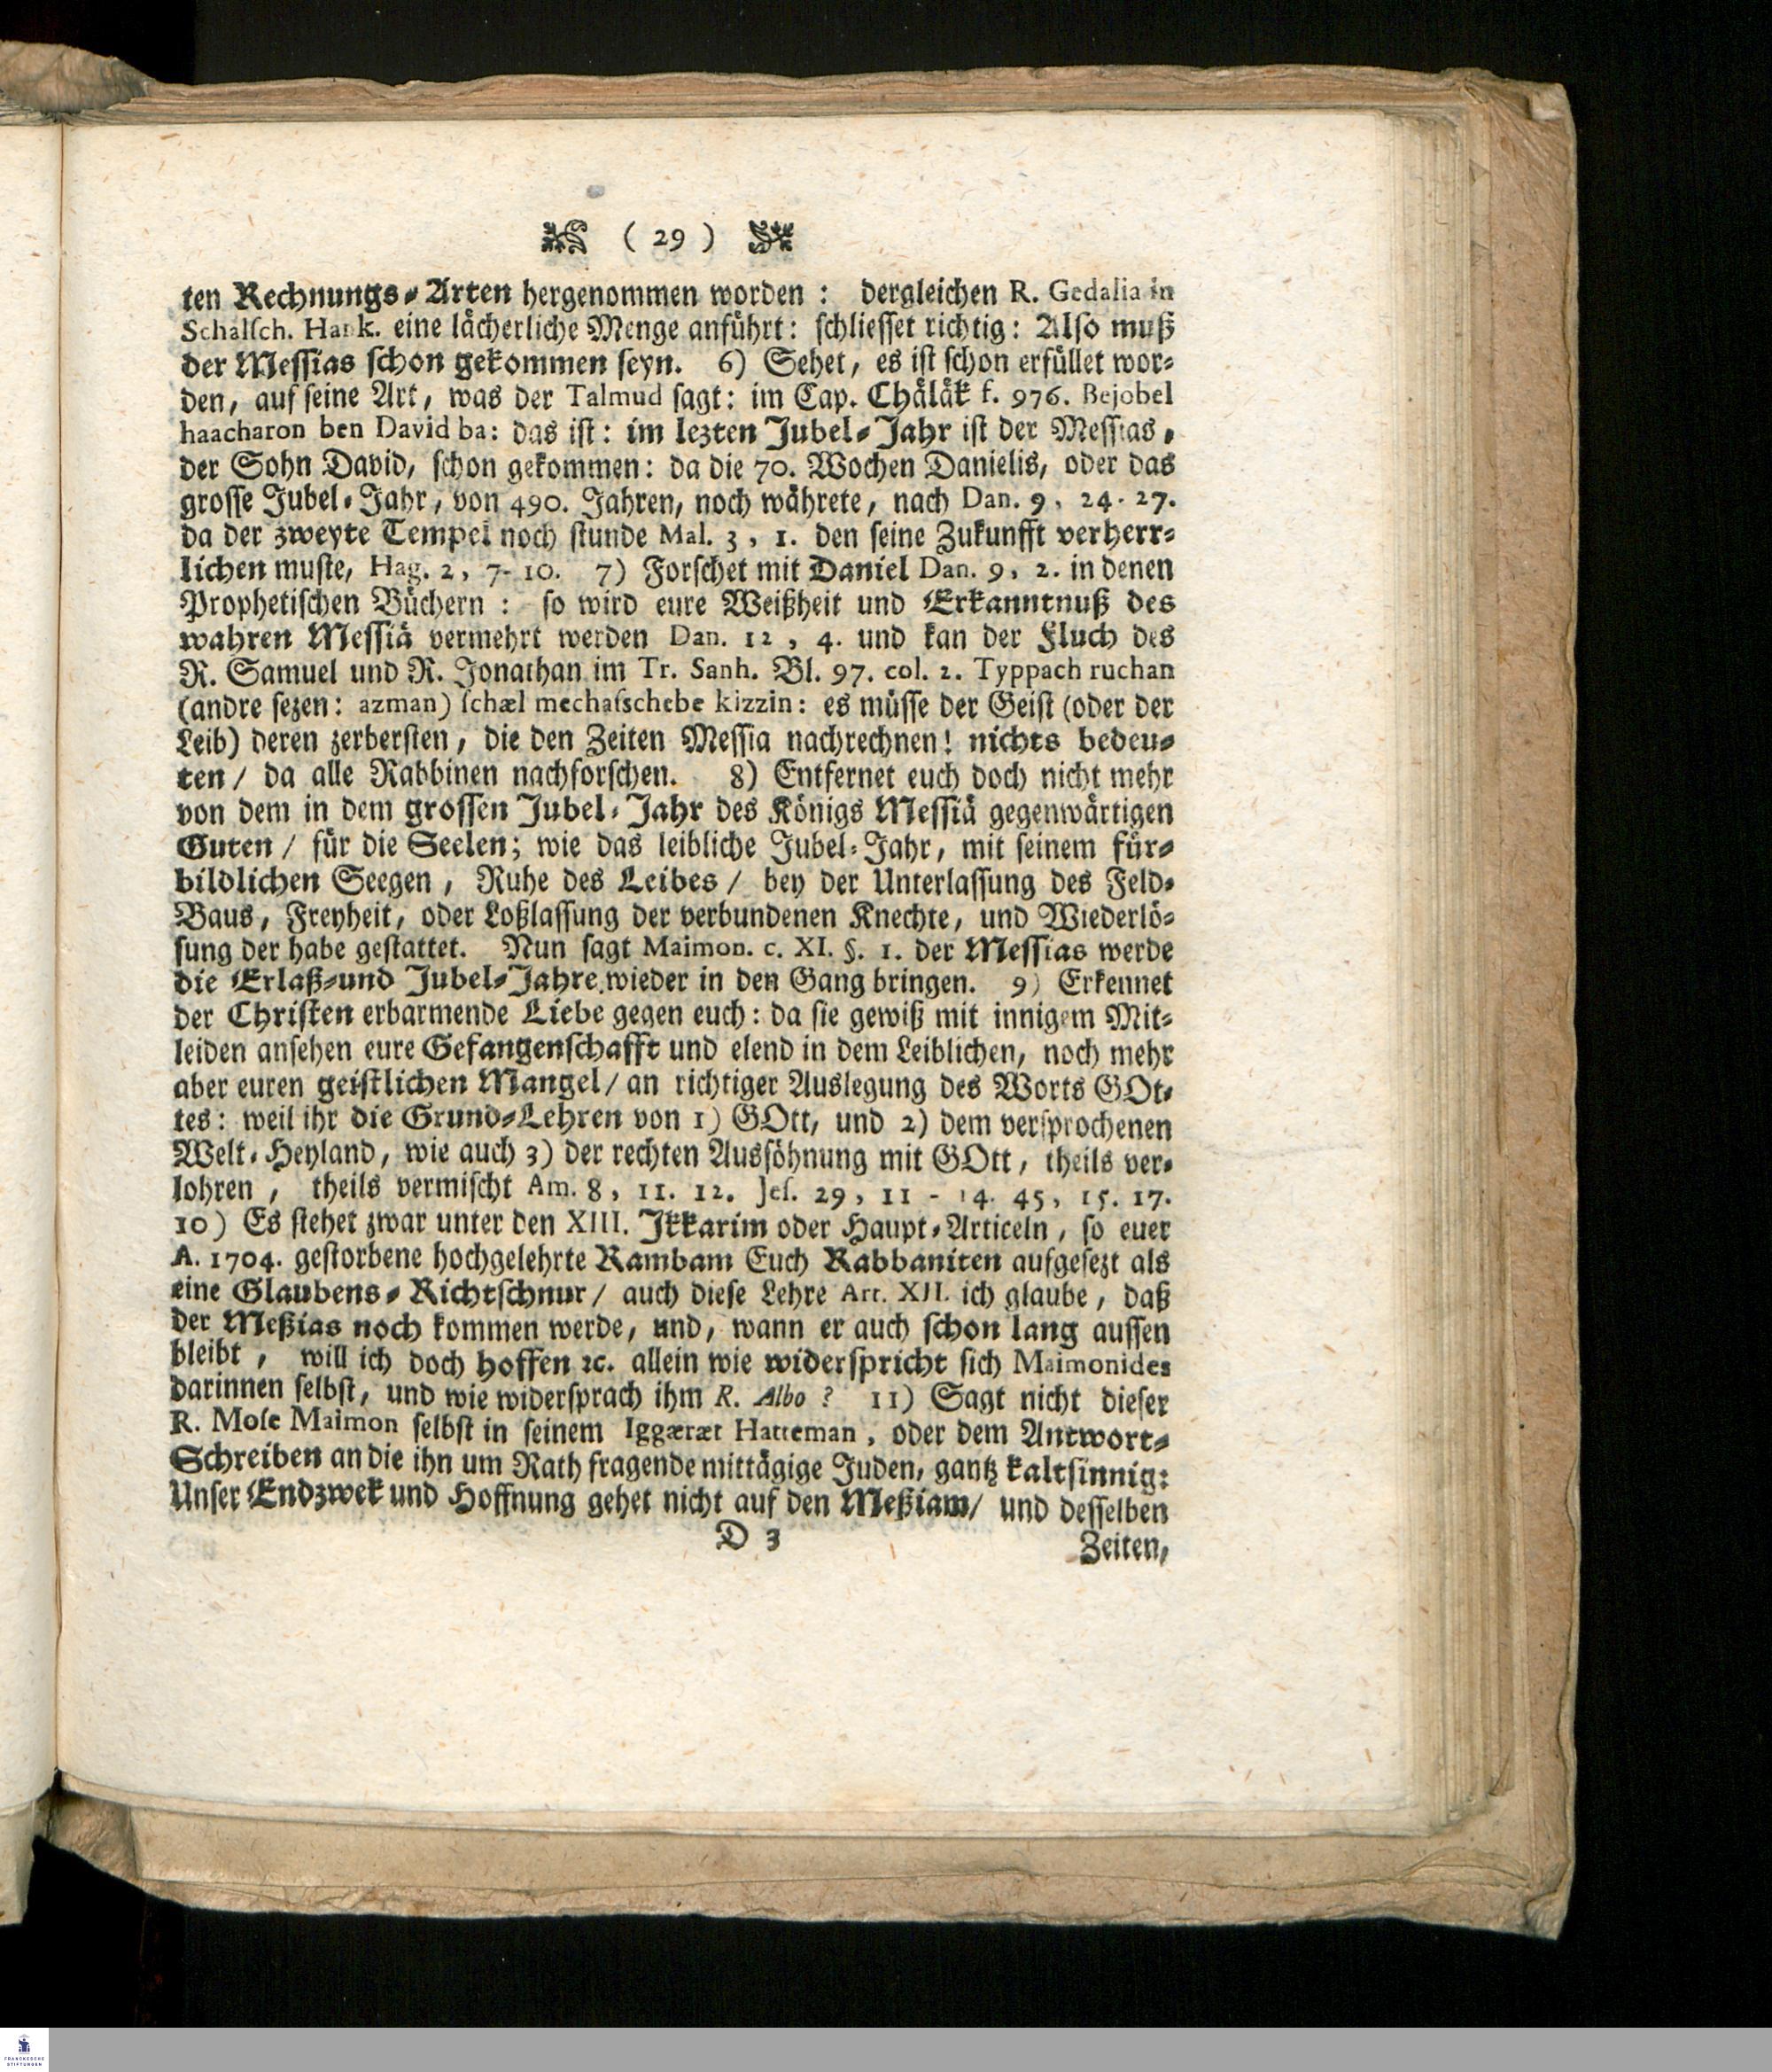 ( 29 )
ten Rechnungs-Arten hergenommen worden : dergleichen R. Gedalia in
Schalſch. Hank. eine lächerliche Menge anführt: ſchlieſſet richtig: Alſo muß
der Meſſias ſchon gekommen ſeyn. 6) Sehet, es iſt ſchon erfüllet wor-
den, auf ſeine Art, was der Talmud ſagt: im Cap. Chäläk f. 976. Bejobel
haacharon ben David ba: das iſt: im lezten Jubel-Jahr iſt der Meſſias,
der Sohn David, ſchon gekommen: da die 70. Wochen Danielis, oder das
groſſe Jubel-Jahr, von 490. Jahren, noch währete, nach Dan. 9, 24-27.
da der zweyte Tempel noch ſtunde Mal. 3, 1. den ſeine Zukunfft verherr-
lichen muſte, Hag. 2, 7-10. 7) Forſchet mit Daniel Dan. 9, 2. in denen
Prophetiſchen Büchern : ſo wird eure Weißheit und Erkanntnuß des
wahren Meſſiä vermehrt werden Dan. 12, 4. und kan der Fluch des
R. Samuel und R. Jonathan im Tr. Sanh. Bl. 97. col. 2. Typpach ruchan
(andre ſezen: azman) ſchæl mechaſschebe kizzin: es müſſe der Geiſt (oder der
Leib) deren zerberſten, die den Zeiten Meſſia nachrechnen! nichts bedeu-
ten / da alle Rabbinen nachforſchen. 8) Entfernet euch doch nicht mehr
von dem in dem groſſen Jubel-Jahr des Königs Meſſiä gegenwärtigen
Guten / für die Seelen; wie das leibliche Jubel-Jahr, mit ſeinem für-
bildlichen Seegen, Ruhe des Leibes / bey der Unterlaſſung des Feld-
Baus, Freyheit, oder Loßlaſſung der verbundenen Knechte, und Wiederlö-
ſung der habe geſtattet. Nun ſagt Maimon. c. XI. §. 1. der Meſſias werde
die Erlaß-und Jubel-Jahre wieder in den Gang bringen. 9) Erkennet
der Chriſten erbarmende Liebe gegen euch: da ſie gewiß mit innigem Mit-
leiden anſehen eure Gefangenſchafft und elend in dem Leiblichen, noch mehr
aber euren geiſtlichen Mangel / an richtiger Auslegung des Worts GOt-
tes: weil ihr die Grund-Lehren von 1) GOtt, und 2) dem verſprochenen
Welt-Heyland, wie auch 3) der rechten Ausſöhnung mit GOtt, theils ver-
lohren, theils vermiſcht Am. 8, 11. 12. Jeſ. 29, 11 - 14. 45, 15. 17.
10) Es ſtehet zwar unter den XIII. Ikkarim oder Haupt-Articeln, ſo euer
A. 1704. geſtorbene hochgelehrte Rambam Euch Rabbaniten aufgeſezt als
eine Glaubens-Richtſchnur / auch dieſe Lehre Art. XII. ich glaube, daß
der Meßias noch kommen werde, und, wann er auch ſchon lang auſſen
bleibt, will ich doch hoffen ꝛc. allein wie widerſpricht ſich Maimonides
darinnen ſelbſt, und wie widerſprach ihm R. Albo ? 11) Sagt nicht dieſer
R. Moſe Maimon ſelbſt in ſeinem Iggæræt Hatteman, oder dem Antwort-
Schreiben an die ihn um Rath fragende mittägige Juden, gantz kaltſinnig:
Unſer Endzwek und Hoffnung gehet nicht auf den Meßiam / und deſſelben
D 3 Zeiten,
FRANCKESCHE
STIFTUNGEN